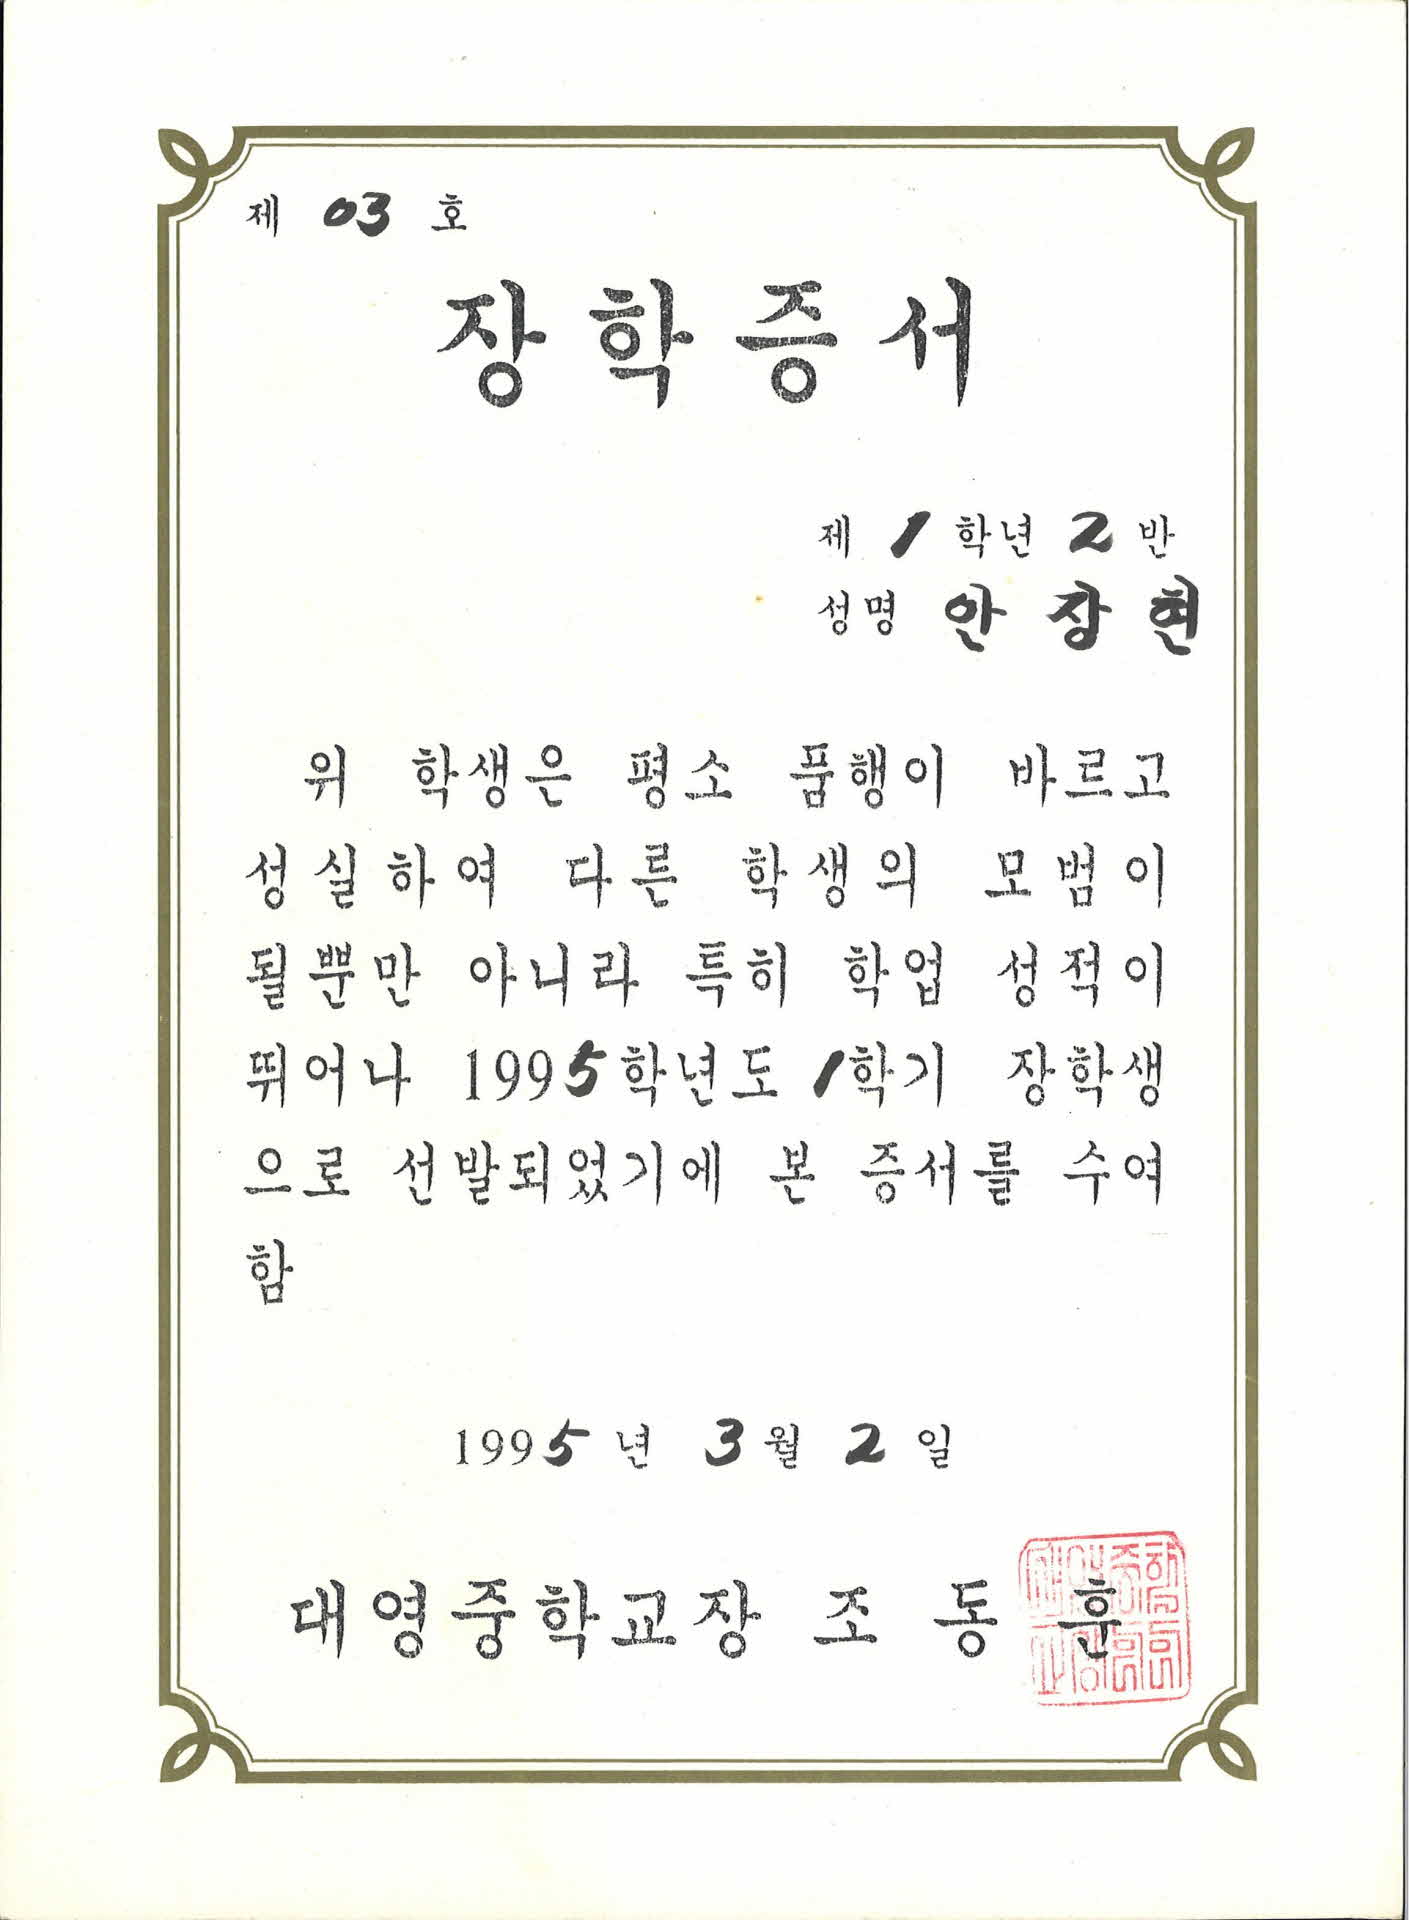 제 03 호
장학증서
제 1 학년 2 반
성명 안 장 현
위 학생은 평소 품행이 바르고
성실하여 다른 학생의 모범이
될뿐만 아니라 특히 학업 성적이
뛰어나 1995학년도 1학기 장학생
으로 선발되었기에 본 증서를 수여
함
1995 년 3 월 2 일
대영중학교장 조 동 훈